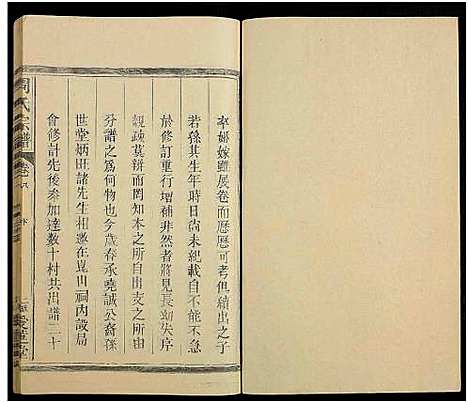 卒婚嫁雖展卷而歷歷可考但續出之子
若孫其生年時日尚未紀載自不能不急
於修訂重行增補非然者將見長幼失序
親疎莫辨而罔知本之所自出支之所由
分譜之爲何物也今歲春承堯誠公裔孫
世堂炳旺諸先生相邀在崑山祠內設局
會修計先後參加達數十村共出譜二十
周氏宗譜